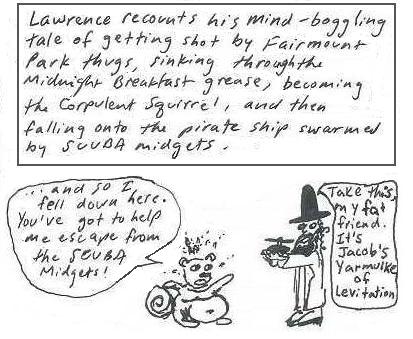 Lawrence recounts his mind-boggling
tale of getting shot by Fairmount
Park thugs, sinking through the
Midnight Breakfast grease, becoming
the Corpulent Squirrel, and then
falling onto the pirate ship swarmed
by SCUBA midgets.
...and so I
fell down here.
You've got to help
me escape from
the SCUBA
Midgets!
Take this,
my fat
friend.
It's
Jacob's
Yarmulke
of
Levitation